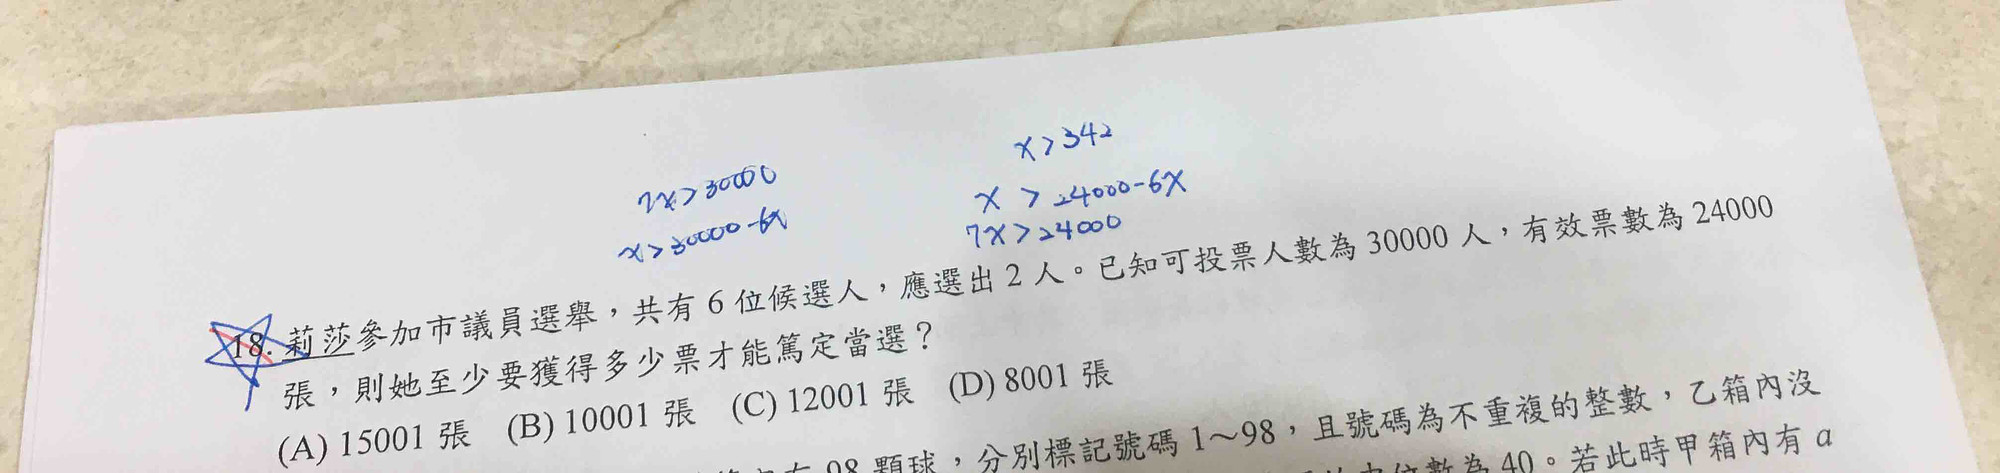 x>342
7x>30000
x > 24000-6x
x>30000-6x
7x>24000
18. 莉莎參加市議員選舉，共有 6 位候選人，應選出 2 人。已知可投票人數為 30000 人，有效票數為 24000
張，則她至少要獲得多少票才能篤定當選？
(A) 15001 張 (B) 10001 張 (C) 12001 張 (D) 8001 張
98 顆球，分別標記號碼 1～98，且號碼為不重複的整數，乙箱內沒
中位數為 40。若此時甲箱內有 a